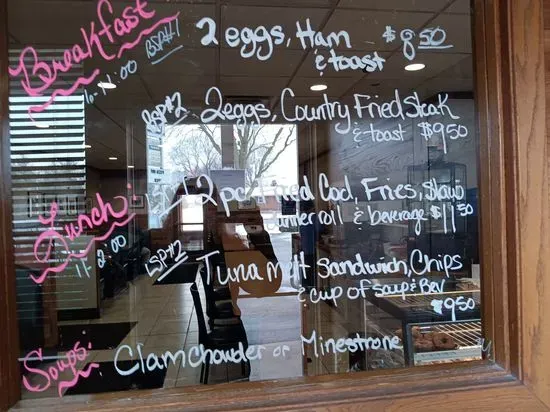 Breakfast
BSP#1
2 eggs, Ham
& toast
$8 50
BSP#2
2 eggs, Country Fried Steak
& toast $9 50
Lunch
11-2:00
2 pc Fried Cod, Fries, slaw
dinner roll & beverage $11 50
LSP#2
Tuna melt sandwich, Chips
& cup of soup & Bev
$9 50
Soups:
Clam Chowder or Minestrone